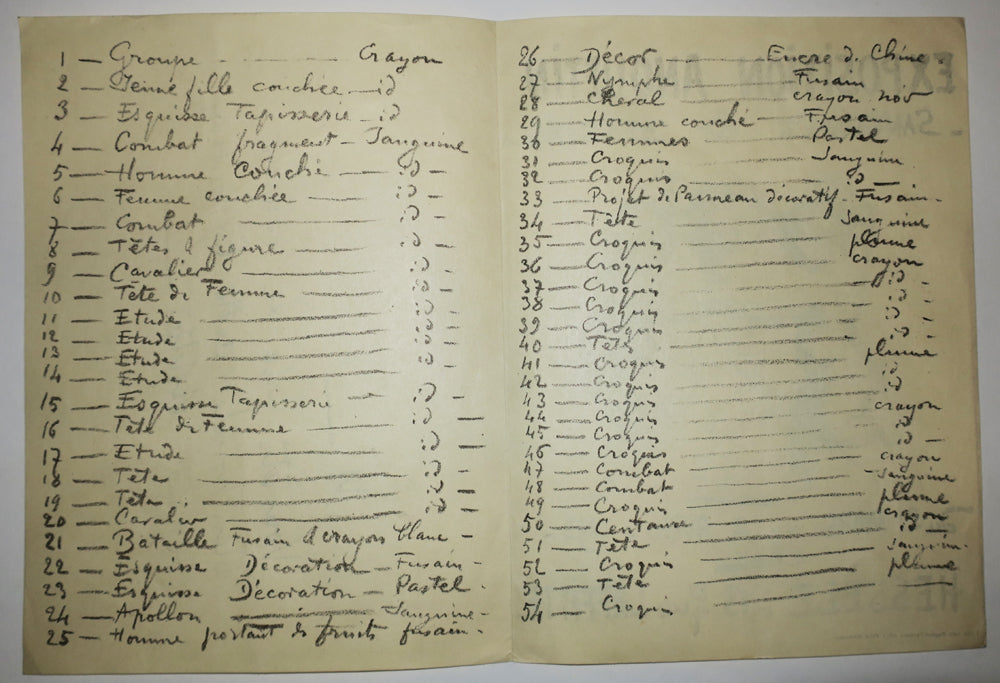 1 — Groupe — Crayon
2 — Jeune fille couchée — id
3 — Esquisse Tapisserie — id
4 — Combat fragment — Sanguine
5 — Homme Couché — id —
6 — Femme couchée — id —
7 — Combat — id —
8 — Têtes & figure — id —
9 — Cavalier — id —
10 — Tête de Femme — id —
11 — Etude — id —
12 — Etude — id —
13 — Etude — id —
14 — Etude
15 — Esquisse Tapisserie — id —
16 — Tête de Femme — id —
17 — Etude — id —
18 — Tête — id —
19 — Tête — id —
20 — Cavalier — id —
21 — Bataille Fusain & crayons blanc —
22 — Esquisse Décoration — Fusain —
23 — Esquisse Décoration — Pastel —
24 — Apollon — Sanguine —
25 — Homme portant des fruits fusain —
26 — Décor — Encre de Chine —
27 — Nymphe — Fusain
28 — Cheval — crayon noir
29 — Homme couché — Fusain
30 — Femmes — Pastel
31 — Croquis — Sanguine
32 — Croquis — id —
33 — Projet de Panneau décoratif — Fusain —
34 — Tête — Sanguine
35 — Croquis — plume
36 — Croquis — crayon
37 — Croquis — id —
38 — Croquis — id —
39 — Croquis — id —
40 — Tête — id —
41 — Croquis — plume
42 — Croquis — id
43 — Croquis — id
44 — Croquis — crayon
45 — Croquis — id —
46 — Croquis — crayon
47 — Combat — Sanguine
48 — Combat — plume
49 — Croquis — crayon
50 — Centaure — id —
51 — Tête — Sanguine
52 — Croquis — plume
53 — Tête —
54 — Croquis